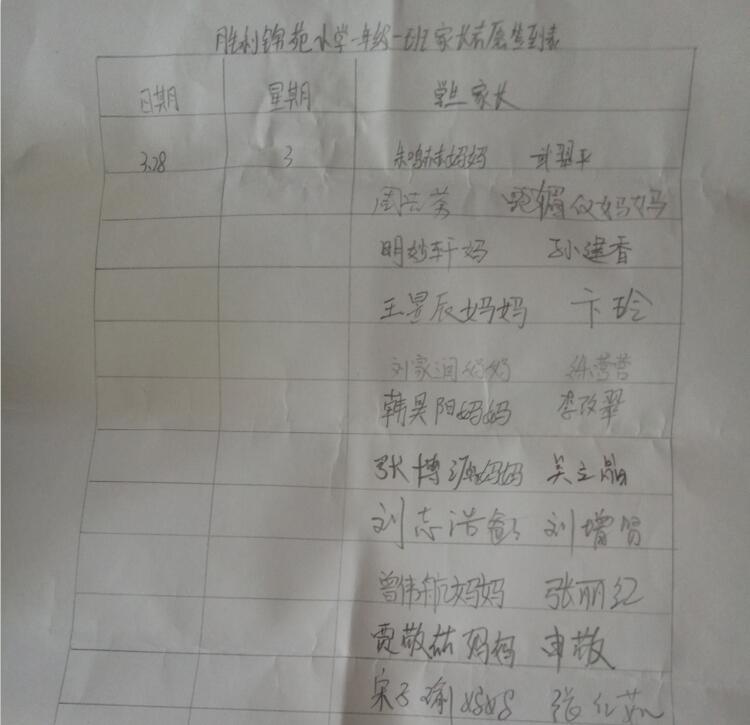 胜利锦苑小学一年级一班家长志愿签到表
日期 星期 学生家长
3.28 3 朱鸣赫妈妈 武翠平
周芸 妈妈
明妙轩妈 孙建香
王昱辰妈妈 卞玲
刘家润妈妈 徐营营
韩昊阳妈妈 李改翠
张博源妈妈 吴立晶
刘志浩爸 刘增贤
曾伟航妈妈 张丽红
贾敬喆妈妈 申敬
宋子瑜妈妈 张红茹